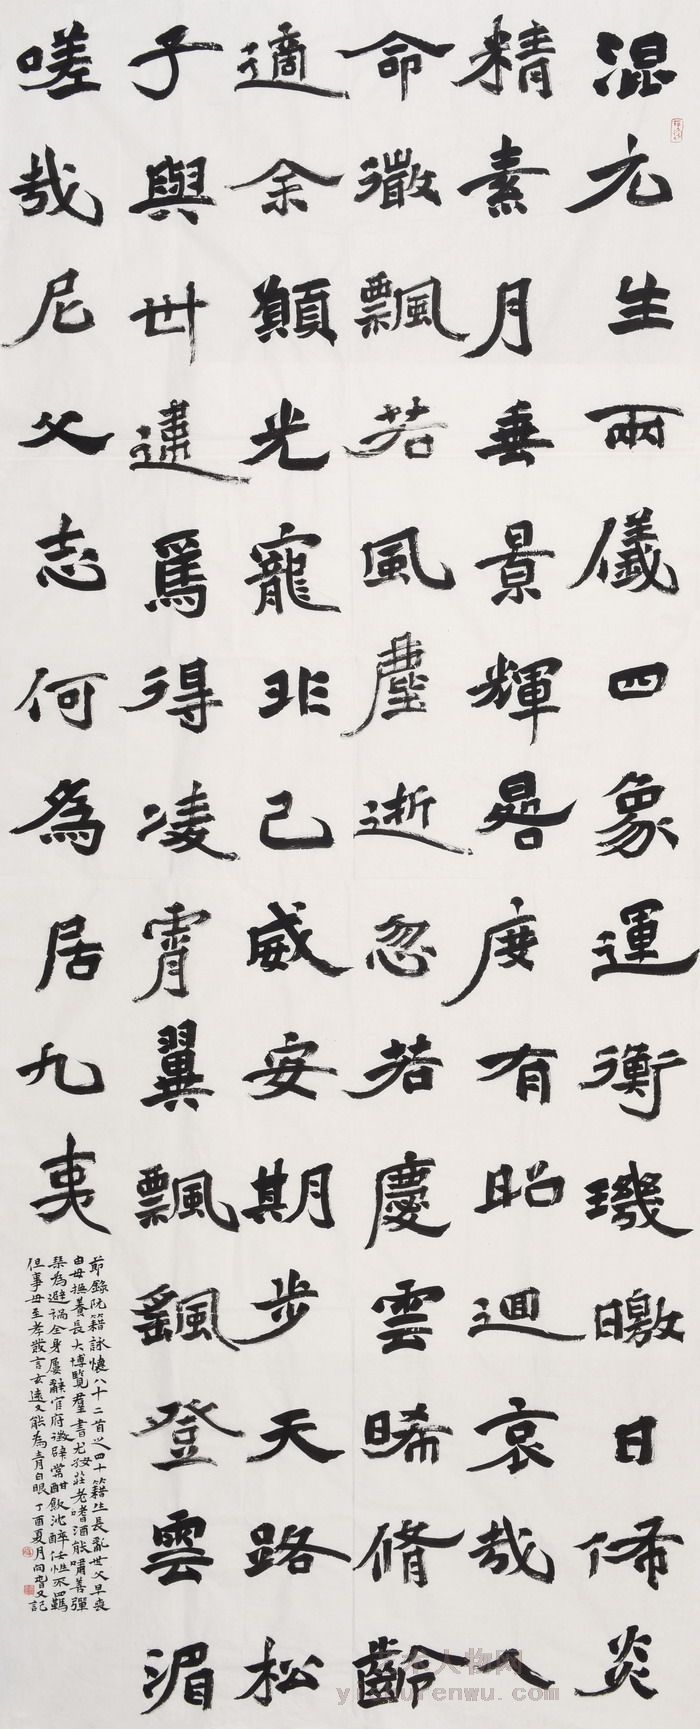 混元生兩儀四象運衡璣曒日佈炎
精素月垂景輝晷度有昭迴哀哉人
命微飄若風塵逝忽若慶雲晞脩齡
適余顛光寵非己威安期步天路松
子與世違焉得凌霄翼飄颻登雲湄
嗟哉尼父志何為居九夷
節錄阮籍詠懷八十二首之四十籍生長亂世父早喪
由母撫養長大博覽羣書尤好莊老嗜酒能嘯善彈
琴為避禍全身屢辭官府徵辟常酣飲沈醉任性不羈
但事母至孝發言玄遠又能為青白眼丁酉夏月向又記
艺术人物网
yishurenwu.com